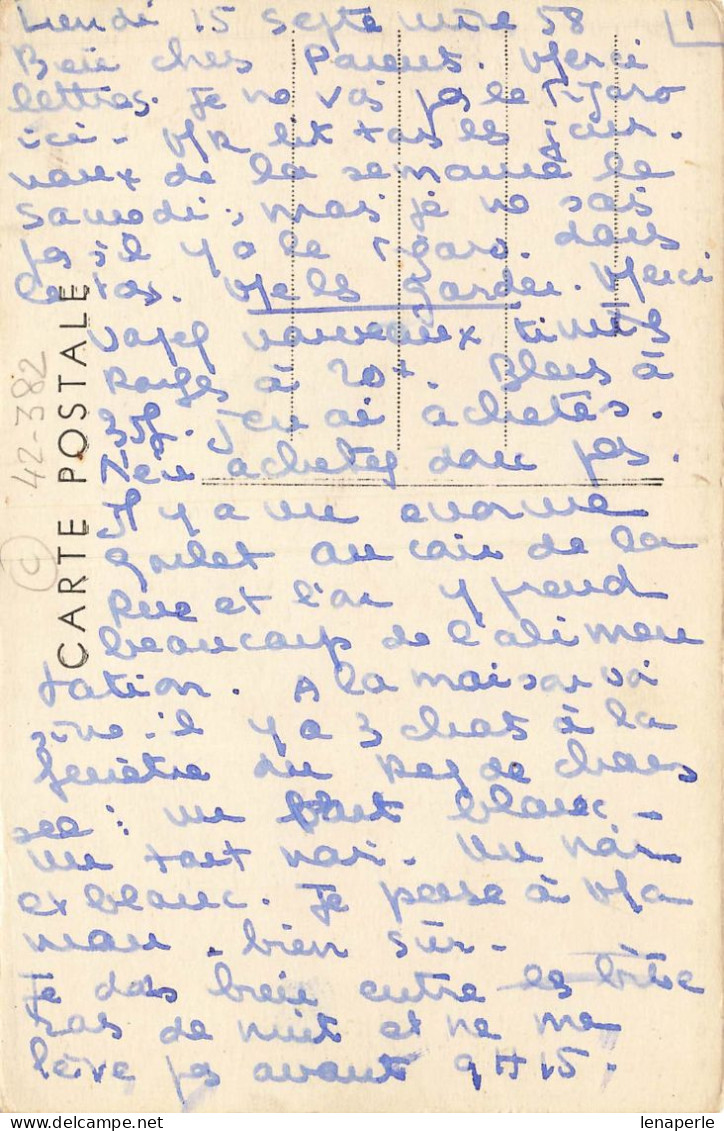 Lundi 15 Septembre 58
1
Bien chers Parents. Merci
lettres. Je ne vois pas le Figaro
ici. Mr lit tous les jour-
naux de la semaine le
Samedi, mais je ne sais
pas s'il y a le Figaro dans
le tas. Me les garder. Merci
nouveaux timbres
rouges à 20f. Bleus à
35f. J'en ai achetés.
N'en achetez donc pas.
Il y a un énorme
au coin de la
rue et l'on y prend
beaucoup de l'alimen
tation. A la maison voi
sine il y a 3 chats à la
fenêtre du Rez de chaus
sée : un tout blanc -
un tout noir. Un noir
et blanc. Je pense à Ma
man. bien sûr.
Je dors bien entre les
de nuit et ne me
lève pas avant 9H15.
CARTE POSTALE
42-382
lenaperle